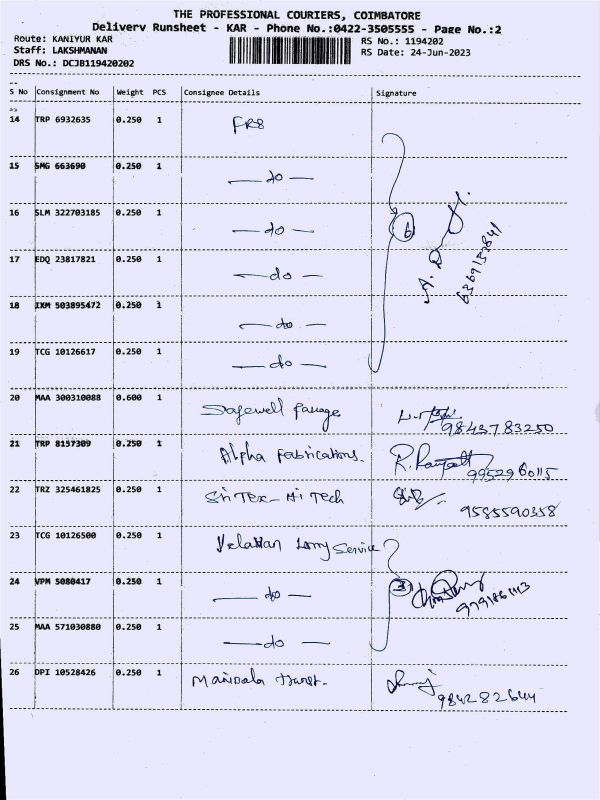 THE PROFESSIONAL COURIERS, COIMBATORE
Delivery Runsheet - KAR - Phone No.:0422-3505555 - Page No.:2
Route: KANIYUR KAR RS No.: 1194202
Staff: LAKSHMANAN RS Date: 24-Jun-2023
DRS No.: DCJB119420202
S No Consignment No Weight PCS Consignee Details Signature
14 TRP 6932635 0.250 1 FR8
15 SMG 663690 0.250 1 — do —
16 SLM 322703185 0.250 1 — do — 6
17 EDQ 23817821 0.250 1 — do —
18 IXM 503895472 0.250 1 — do —
19 TCG 10126617 0.250 1 — do —
20 MAA 300310088 0.600 1 9843783250
21 TRP 8157309 0.250 1 Alpha Fabrications. 9952960115
22 TRZ 325461825 0.250 1 Sri Tex - Hi Tech 9585590358
23 TCG 10126500 0.250 1 Lorry Service
24 VPM 5080417 0.250 1 — do — 3
25 MAA 571030880 0.250 1 — do —
26 DPI 10528426 0.250 1 984282644